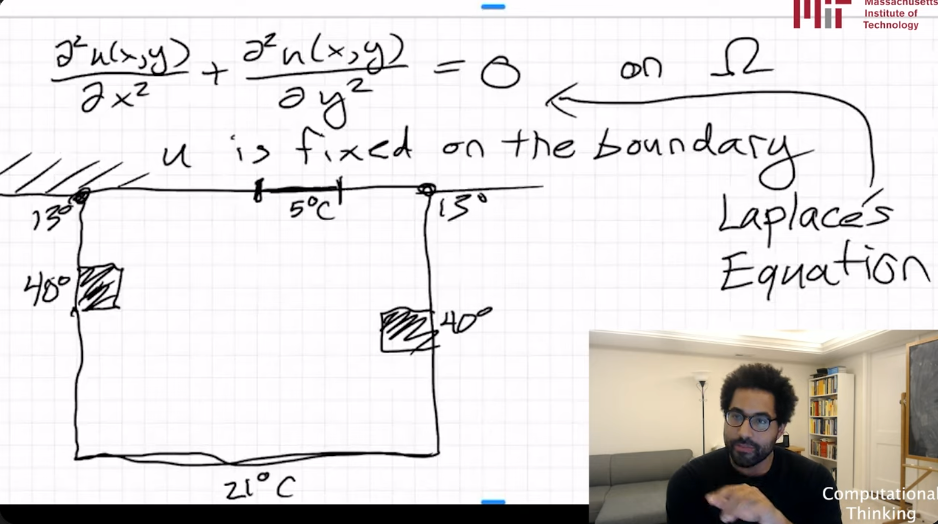 Massachusetts
Institute of
Technology
∂²u(x,y)/∂x² + ∂²u(x,y)/∂y² = 0 on Ω
u is fixed on the boundary
13° 5°C 13°
Laplace's
Equation
40° 40°
21°C
Computational
Thinking